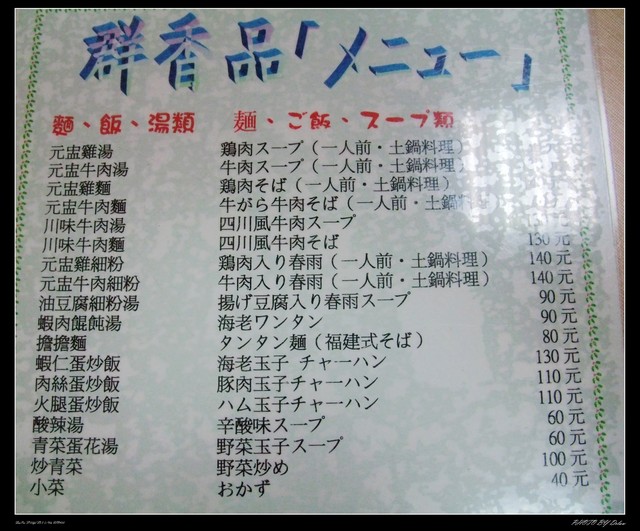 群香品「メニュー」
麵、飯、湯類 麵、ご飯、スープ類
元盅雞湯 鶏肉スープ（一人前・土鍋料理）
元盅牛肉湯 牛肉スープ（一人前・土鍋料理）
元盅雞麵 鶏肉そば（一人前・土鍋料理）
元盅牛肉麵 牛がら牛肉そば（一人前・土鍋
川味牛肉湯 四川風牛肉スープ
川味牛肉麵 四川風牛肉そば 130元
元盅雞細粉 鶏肉入り春雨（一人前・土鍋料理） 140元
元盅牛肉細粉 牛肉入り春雨（一人前・土鍋料理） 140元
油豆腐細粉湯 揚げ豆腐入り春雨スープ 90元
蝦肉餛飩湯 海老ワンタン 90元
擔擔麵 タンタン麵（福建式そば） 80元
蝦仁蛋炒飯 海老玉子 チャーハン 130元
肉絲蛋炒飯 豚肉玉子チャーハン 110元
火腿蛋炒飯 ハム玉子チャーハン 110元
酸辣湯 辛酸味スープ 60元
青菜蛋花湯 野菜玉子スープ 60元
炒青菜 野菜炒め 100元
小菜 おかず 40元
PHOTO BY